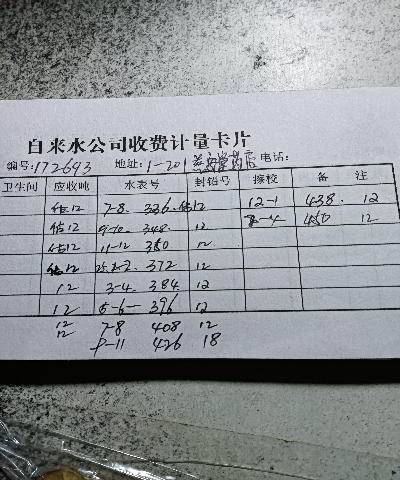 自来水公司收费计量卡片
编号:172643 地址:1-201 益安堂药店 电话:
卫生间 应收吨 水表号 封铅号 擦校 备 注
估12 7-8. 336. 估12 12-1 438. 12
估12 9-10. 348. 12 2-4 450 12
估12 11-12 360 12
估12 25.1-2. 372 12
12 3-4. 384. 12
12 5-6- 396 12
12 7-8 408 12
12 9-11 426 18